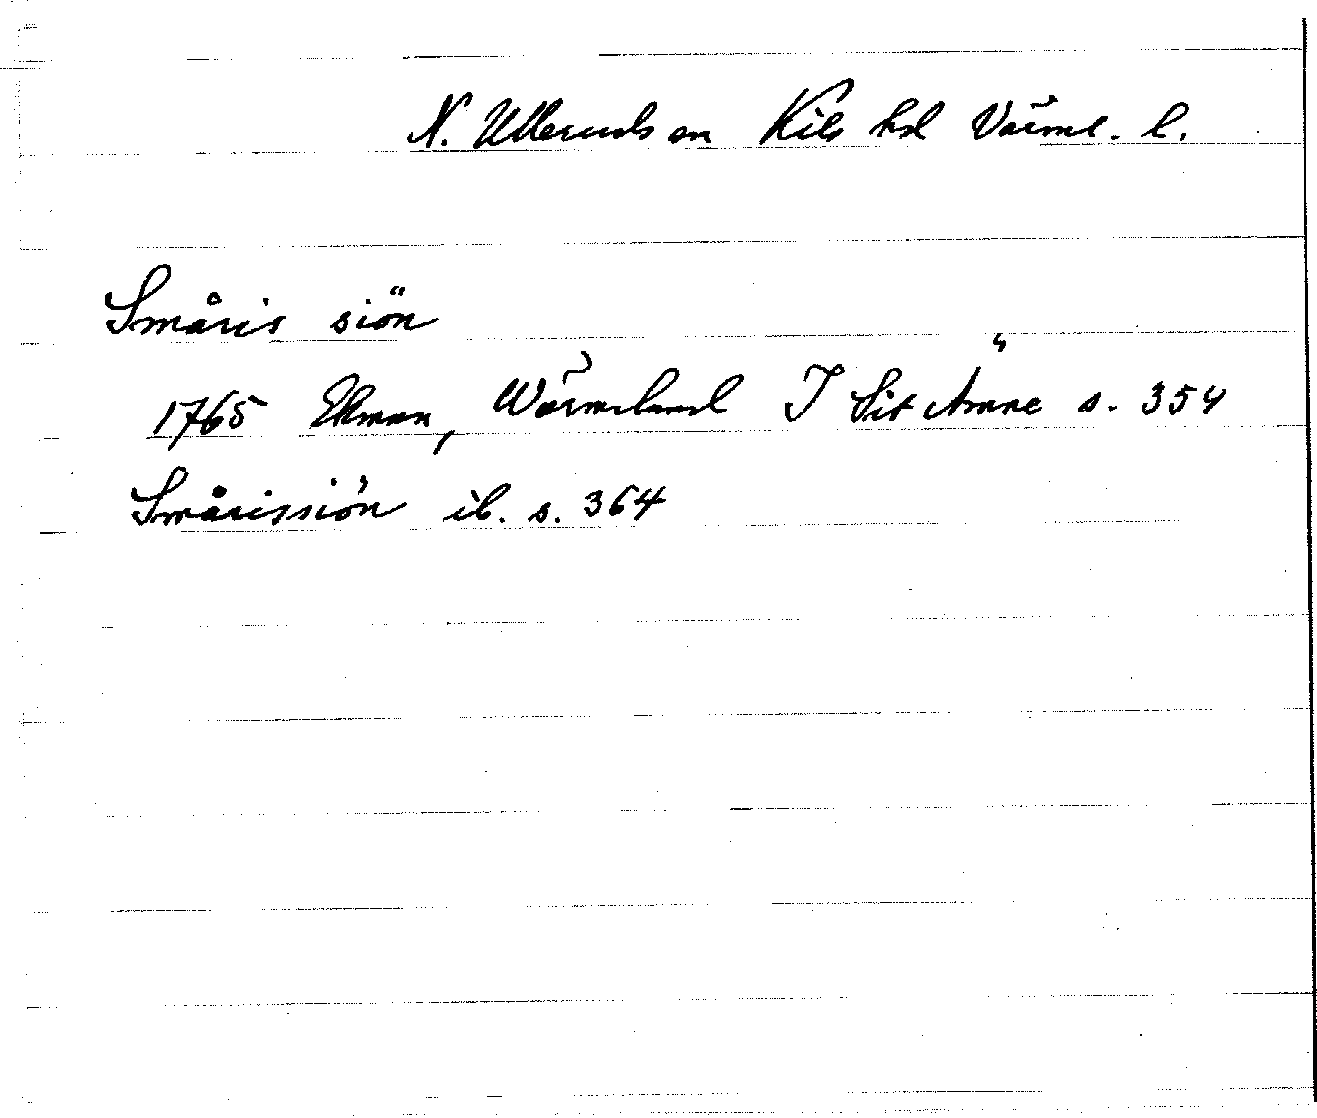 N. Ulleruds sn Kils hd Värml. l.
Småris siön
1765 Ekman, Wärmeland I Sit Ämne s. 354
Smårissiön ib. s. 364